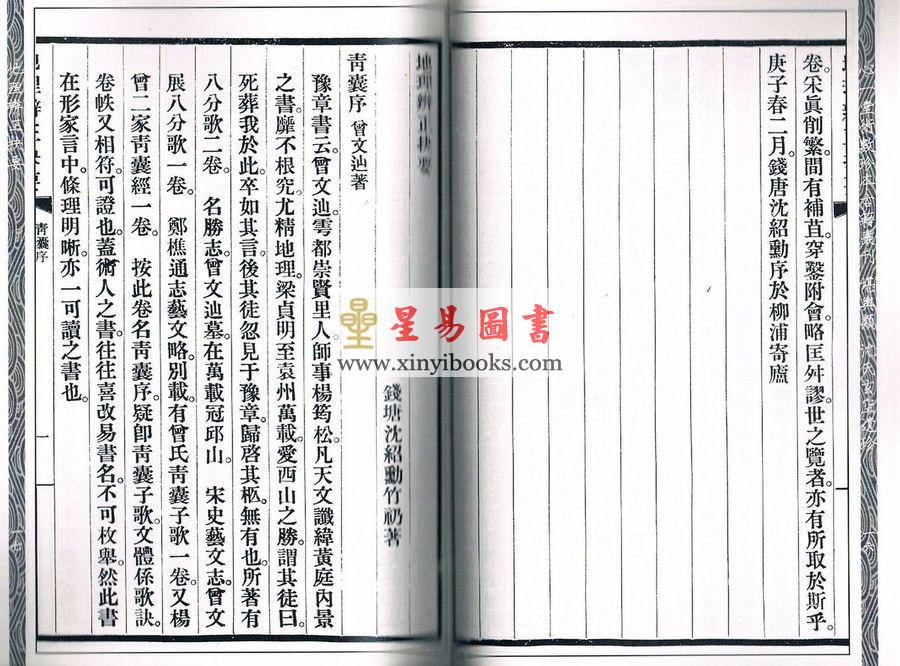 卷。采眞削繁。間有補苴。穿鑿附會。略匡舛謬。世之覽者。亦有所取於斯乎。
庚子春二月。錢唐沈紹勳序於柳浦寄廬
地理辨正抉要
錢塘沈紹勳竹礽著
青囊序 曾文辿著
豫章書云。曾文辿。雩都崇賢里人。師事楊筠松。凡天文讖緯黃庭內景
之書。靡不根究。尤精地理。梁貞明至袁州萬載。愛西山之勝。謂其徒曰。
死葬我於此。卒如其言。後其徒忽見于豫章。歸啓其柩。無有也。所著有
八分歌二卷。 名勝志。曾文辿墓。在萬載冠邱山。 宋史藝文志。曾文
展八分歌一卷。 鄭樵通志藝文略。別載。有曾氏靑囊子歌一卷。又楊
曾二家靑囊經一卷。 按此卷名靑囊序。疑卽靑囊子歌。文體係歌訣。
卷帙又相符。可證也。蓋術人之書。往往喜改易書名。不可枚舉。然此書
在形家言中。條理明晰。亦一可讀之書也。
靑囊序
一
星易圖書
www.xinyibooks.com